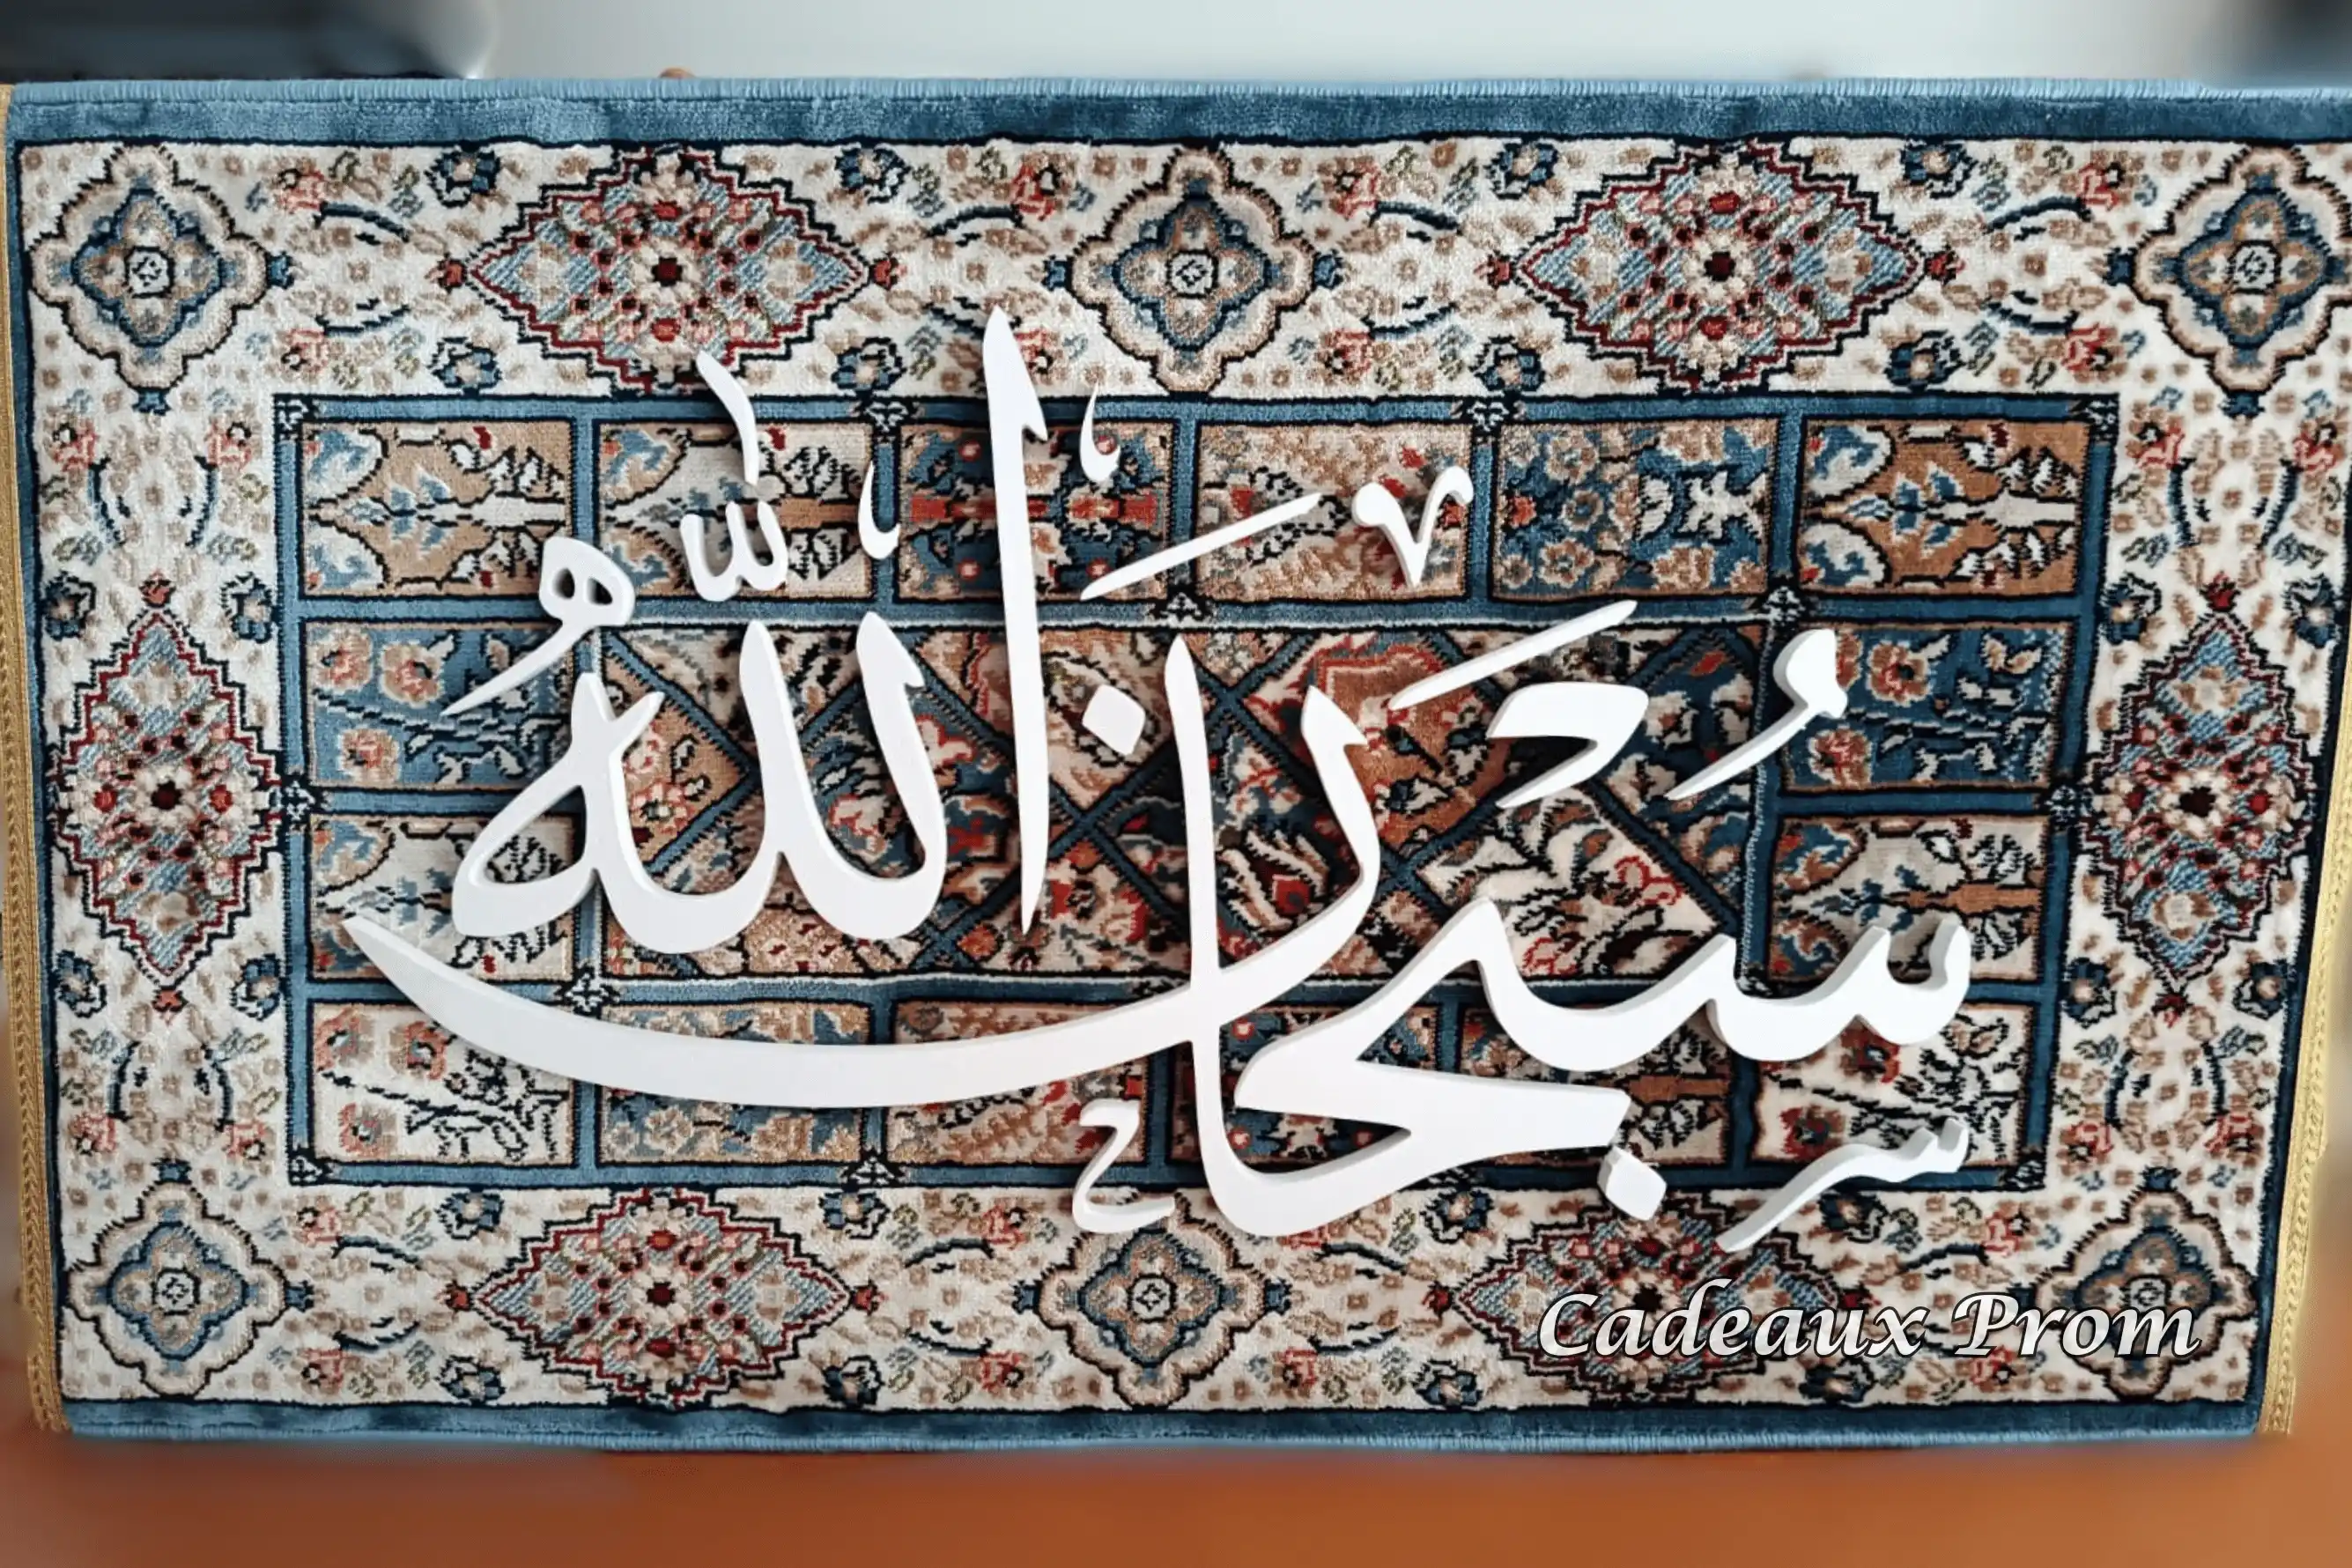 سُبْحَانَ اللّٰهِ
Cadeaux Prom